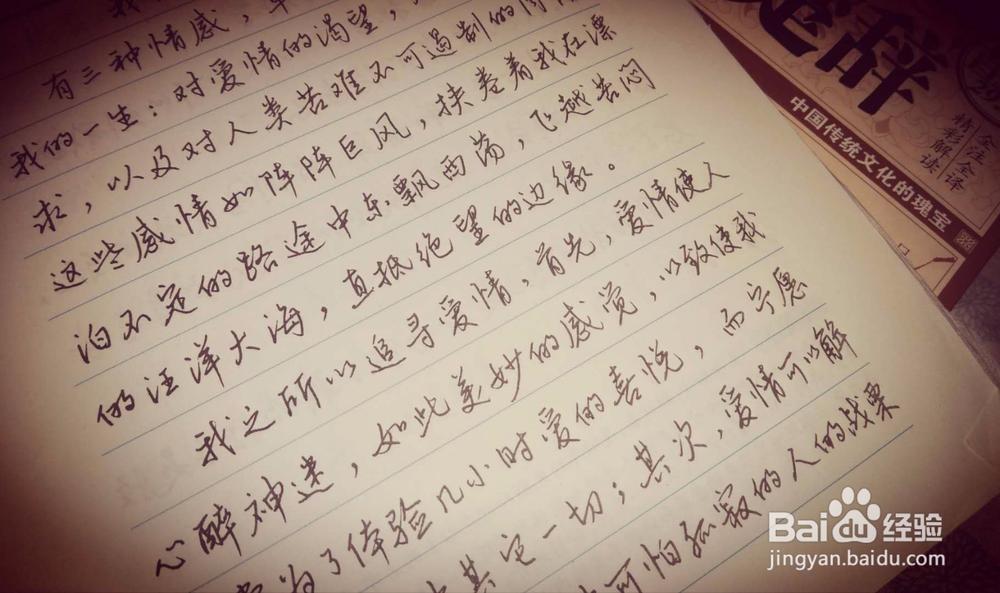 有三种情感，
我的一生：对爱情的渴望，
求，以及对人类苦难不可遏制的
这些感情如阵阵巨风，挟卷着我在漂
泊不定的路途中东飘西荡，飞越苦闷
的汪洋大海，直抵绝望的边缘。
我之所以追寻爱情，首先，爱情使人
心醉神迷，如此美妙的感觉，以致使我
为了体验几小时爱的喜悦，而宁愿
其它一切；其次，爱情可以解
可怕孤寂的人的战栗
辞
精彩解读
全注全译
中国传统文化的瑰宝
Bai百度经验
jingyan.baidu.com